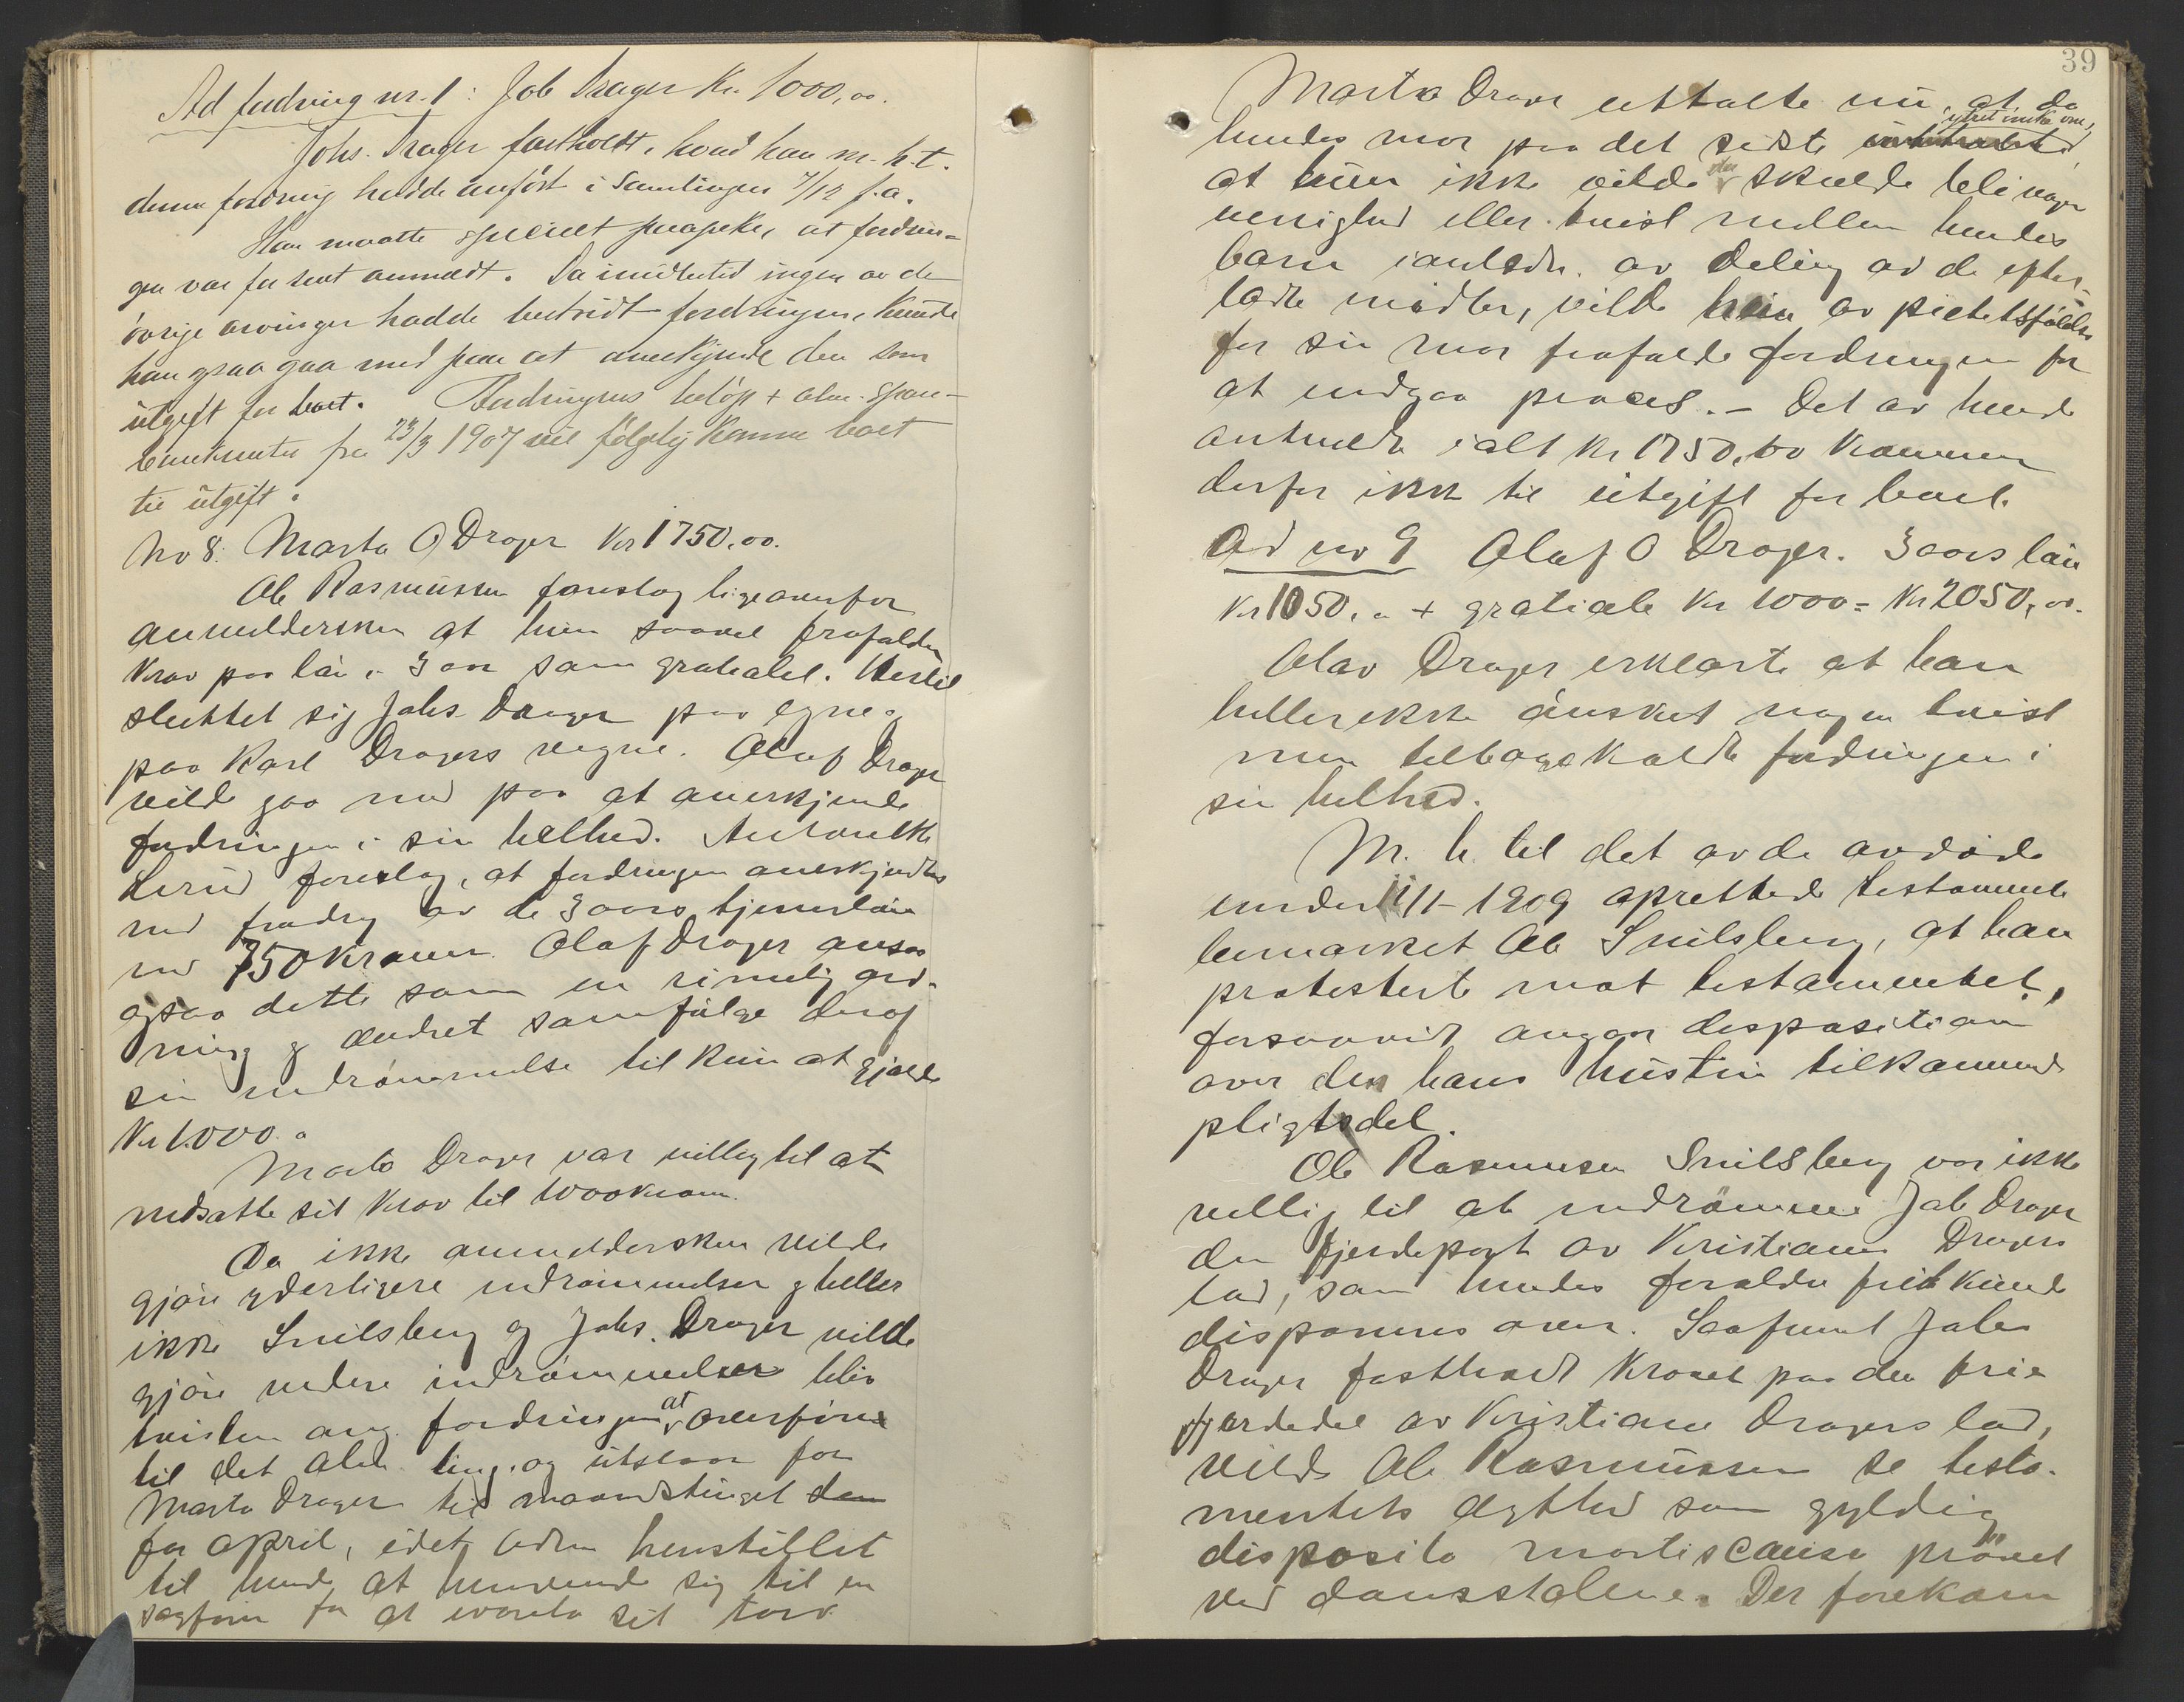 Ad fordring nr. 1: Job Drager Kr. 1000,00.
Johs. Drager fastholdt, hvad han m. h. t.
denne fordring hadde anført i samlingen 7/12 f. a.
Han maatte specielt paapeke, at fordrin-
gen var for sent anmeldt. Da imidlertid ingen av de
øvrige arvinger hadde bestridt fordringen, kunde
han ogsaa gaa med paa at anerkjende den som
utgift for boet. Fordringens beløp + alm. spare-
bankrenter fra 23/3 1907 vil følgelig komme boet
til utgift.
No 8. Marta O Drager Kr 1750,00.
Ole Rasmussen foreslog ligeoverfor
anmeldersken at hun saavel frafaldt
krav paa løn i 3 aar som gratialet. Hertil
sluttet sig Johs Drager paa egne og
paa Karl Dragers vegne. Oluf Drager
vilde gaa med paa at anerkjende
fordringen i sin helhed.
foreslog, at fordringen anerkjendtes
med fradrag av de 3 aars tjenerløn
med 750 kroner. Olaf Drager ansaa
ogsaa dette som en rimelig ord-
ning og ændret som følge derav
sin indrømmelse til kun at gjælde
Kr 1000.
Marta Drager var villig til at
nedsatte sit krav til 1000 kroner.
Da ikke anmeldersken vilde
gjøre yderligere indrømmelser og heller
ikke Snilsberg og Johs. Drager vilde
gjøre videre indrømmelser blev
tvisten ang. fordringen at overføre
til det alm. ting og utsaaes for
Marta Drager til maanedstinget
for april, idet adm henstillet
til hende at henvende sig til en
sagfører for at ivareta sit tarv.
39
Marta Drager uttalte nu, at da
hendes mor paa det sidste ytret ønske om,
at hun ikke vilde der skulde bli nogen
uenighed eller tvist mellem hendes
barn i anledn. av deling av de efter-
ladte midler, vilde hun av pietetsfølelse
for sin mor frafalde fordringen for
at undgaa proces. – Det av hende
anmeldte ialt Kr 1750,00 kommer
derfor ikke til utgift for boet.
Ad no 9 Olaf O Drager. 3 aars løn
Kr 1050,00 + gratiale Kr 1000 = Kr 2050,00.
Olav Drager erklærte at han
heller ikke ønsket nogen tvist
men tilbagekaldte fordringen i
sin helhed.
M. h. til det av de avdøde
under 11/1-1909 oprettede testamente
bemærket Ole Snilsberg, at han
protesterte mot testamentet,
forsaavidt angaar disposition
over den hans hustru tilkommende
pligtsdel.
Ole Rasmussen Snilsberg var ikke
villig til at indrømme Job Drager
den fjerdepart av Kristiane Dragers
lod, som hendes forældre frit kunde
disponere over. Saafremt Job
Drager fastholdt kravet paa den frie
fjerdedel av Kristiane Dragers lod,
vilde Ole Rasmussen se testa-
mentets ægthed som gyldig
disposito mortis causa prøvet
ved domstolene. Der forekom